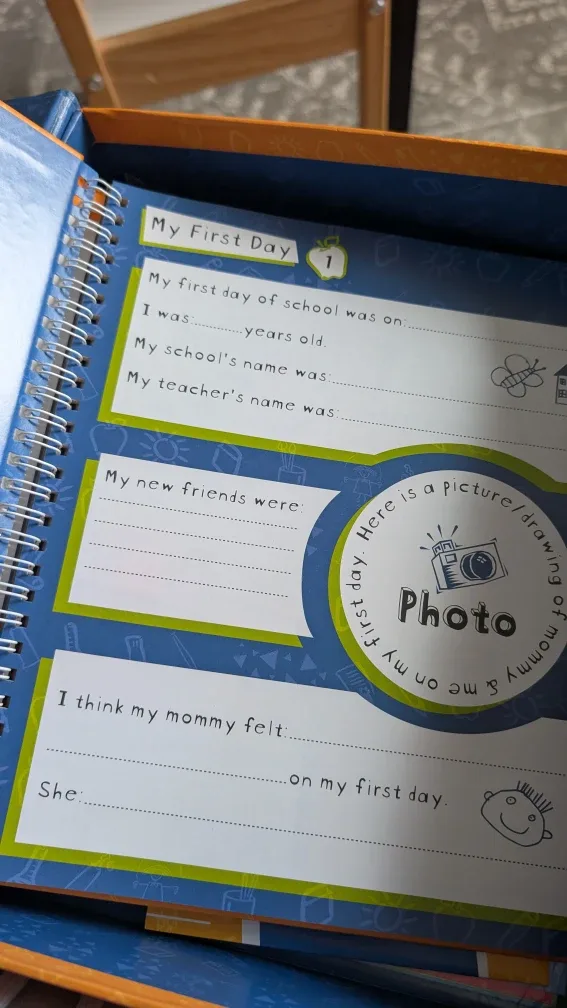 My First Day
1
My first day of school was on:
I was:..........years old.
My school's name was:
My teacher's name was:
My new friends were:
Here is a picture/drawing of mommy & me on my first day.
Photo
I think my mommy felt:
on my first day.
She: